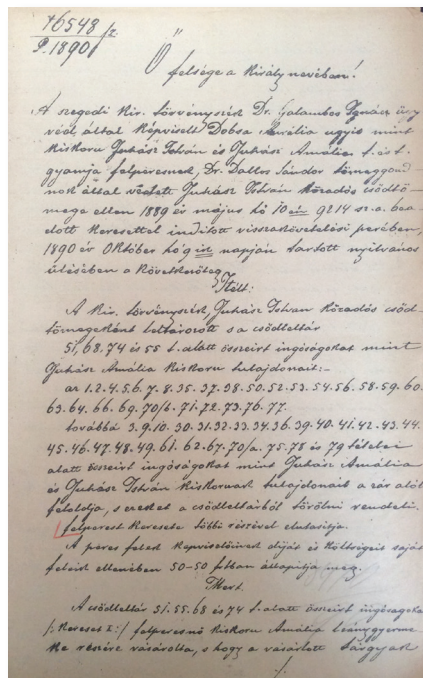 46548/12
P. 1890
Ő felsége a Király nevében!
A szegedi Kir. törvényszék Dr. Galambos Ignácz ügy
véd által képviselt Dobsa Aurélia ugyis mint
Kiskoru Juhász István és Juhász Amália t. és t.
gyamja felperesnek, Dr. Dallos Sándor tömeggond
nok által védett Juhász István közadós csődtö
mege ellen 1889 év május hó 10 én 9214 sz. a. bea
dott keresettel inditott visszakövetelési perében,
1890 év Október hó 9 ik napján tartott nyilvános
ülésében a következőleg
Itélt:
A kir. törvényszék, Juhász Istvan közadós csőd-
tömegeként leltározott s a csődleltár
51, 68. 74 és 55 t. alatt összeirt ingóságokat mint
Juhász Amália Kiskoru tulajdonait:-
az 1. 2. 4. 5. 6. 7. 8. 35. 37. 38. 50. 52. 53. 54. 56. 58. 59. 60.
63. 64. 66. 69. 70/b. 71. 72. 73. 76. 77.
továbbá 3. 9. 10. 30. 31. 32. 33. 34. 36. 39. 40. 41. 42. 43. 44.
45. 46. 47. 48. 49. 61. 62. 67. 70/a. 75. 78 és 79 tételei
alatt összeirt ingóságokat mint Juhász Amália
és Juhász István Kiskoruak tulajdonait a zár alól
feloldja, s ezeket a csődleltárból törölni rendeli.
felperest keresete többi részével elutasitja.
A peres felek képviselőinek díját és költségeit saját
feleik ellenében 50-50 ftban állapitja meg.
Mert
A csődleltár 51. 55. 68 és 74 t. alatt összeirt ingóságoka
/: Kereses I:/ felperesnő kiskoru Amália leánygyerme
ke részére vásárolta, s hogy a vásárlott tárgyak
./.